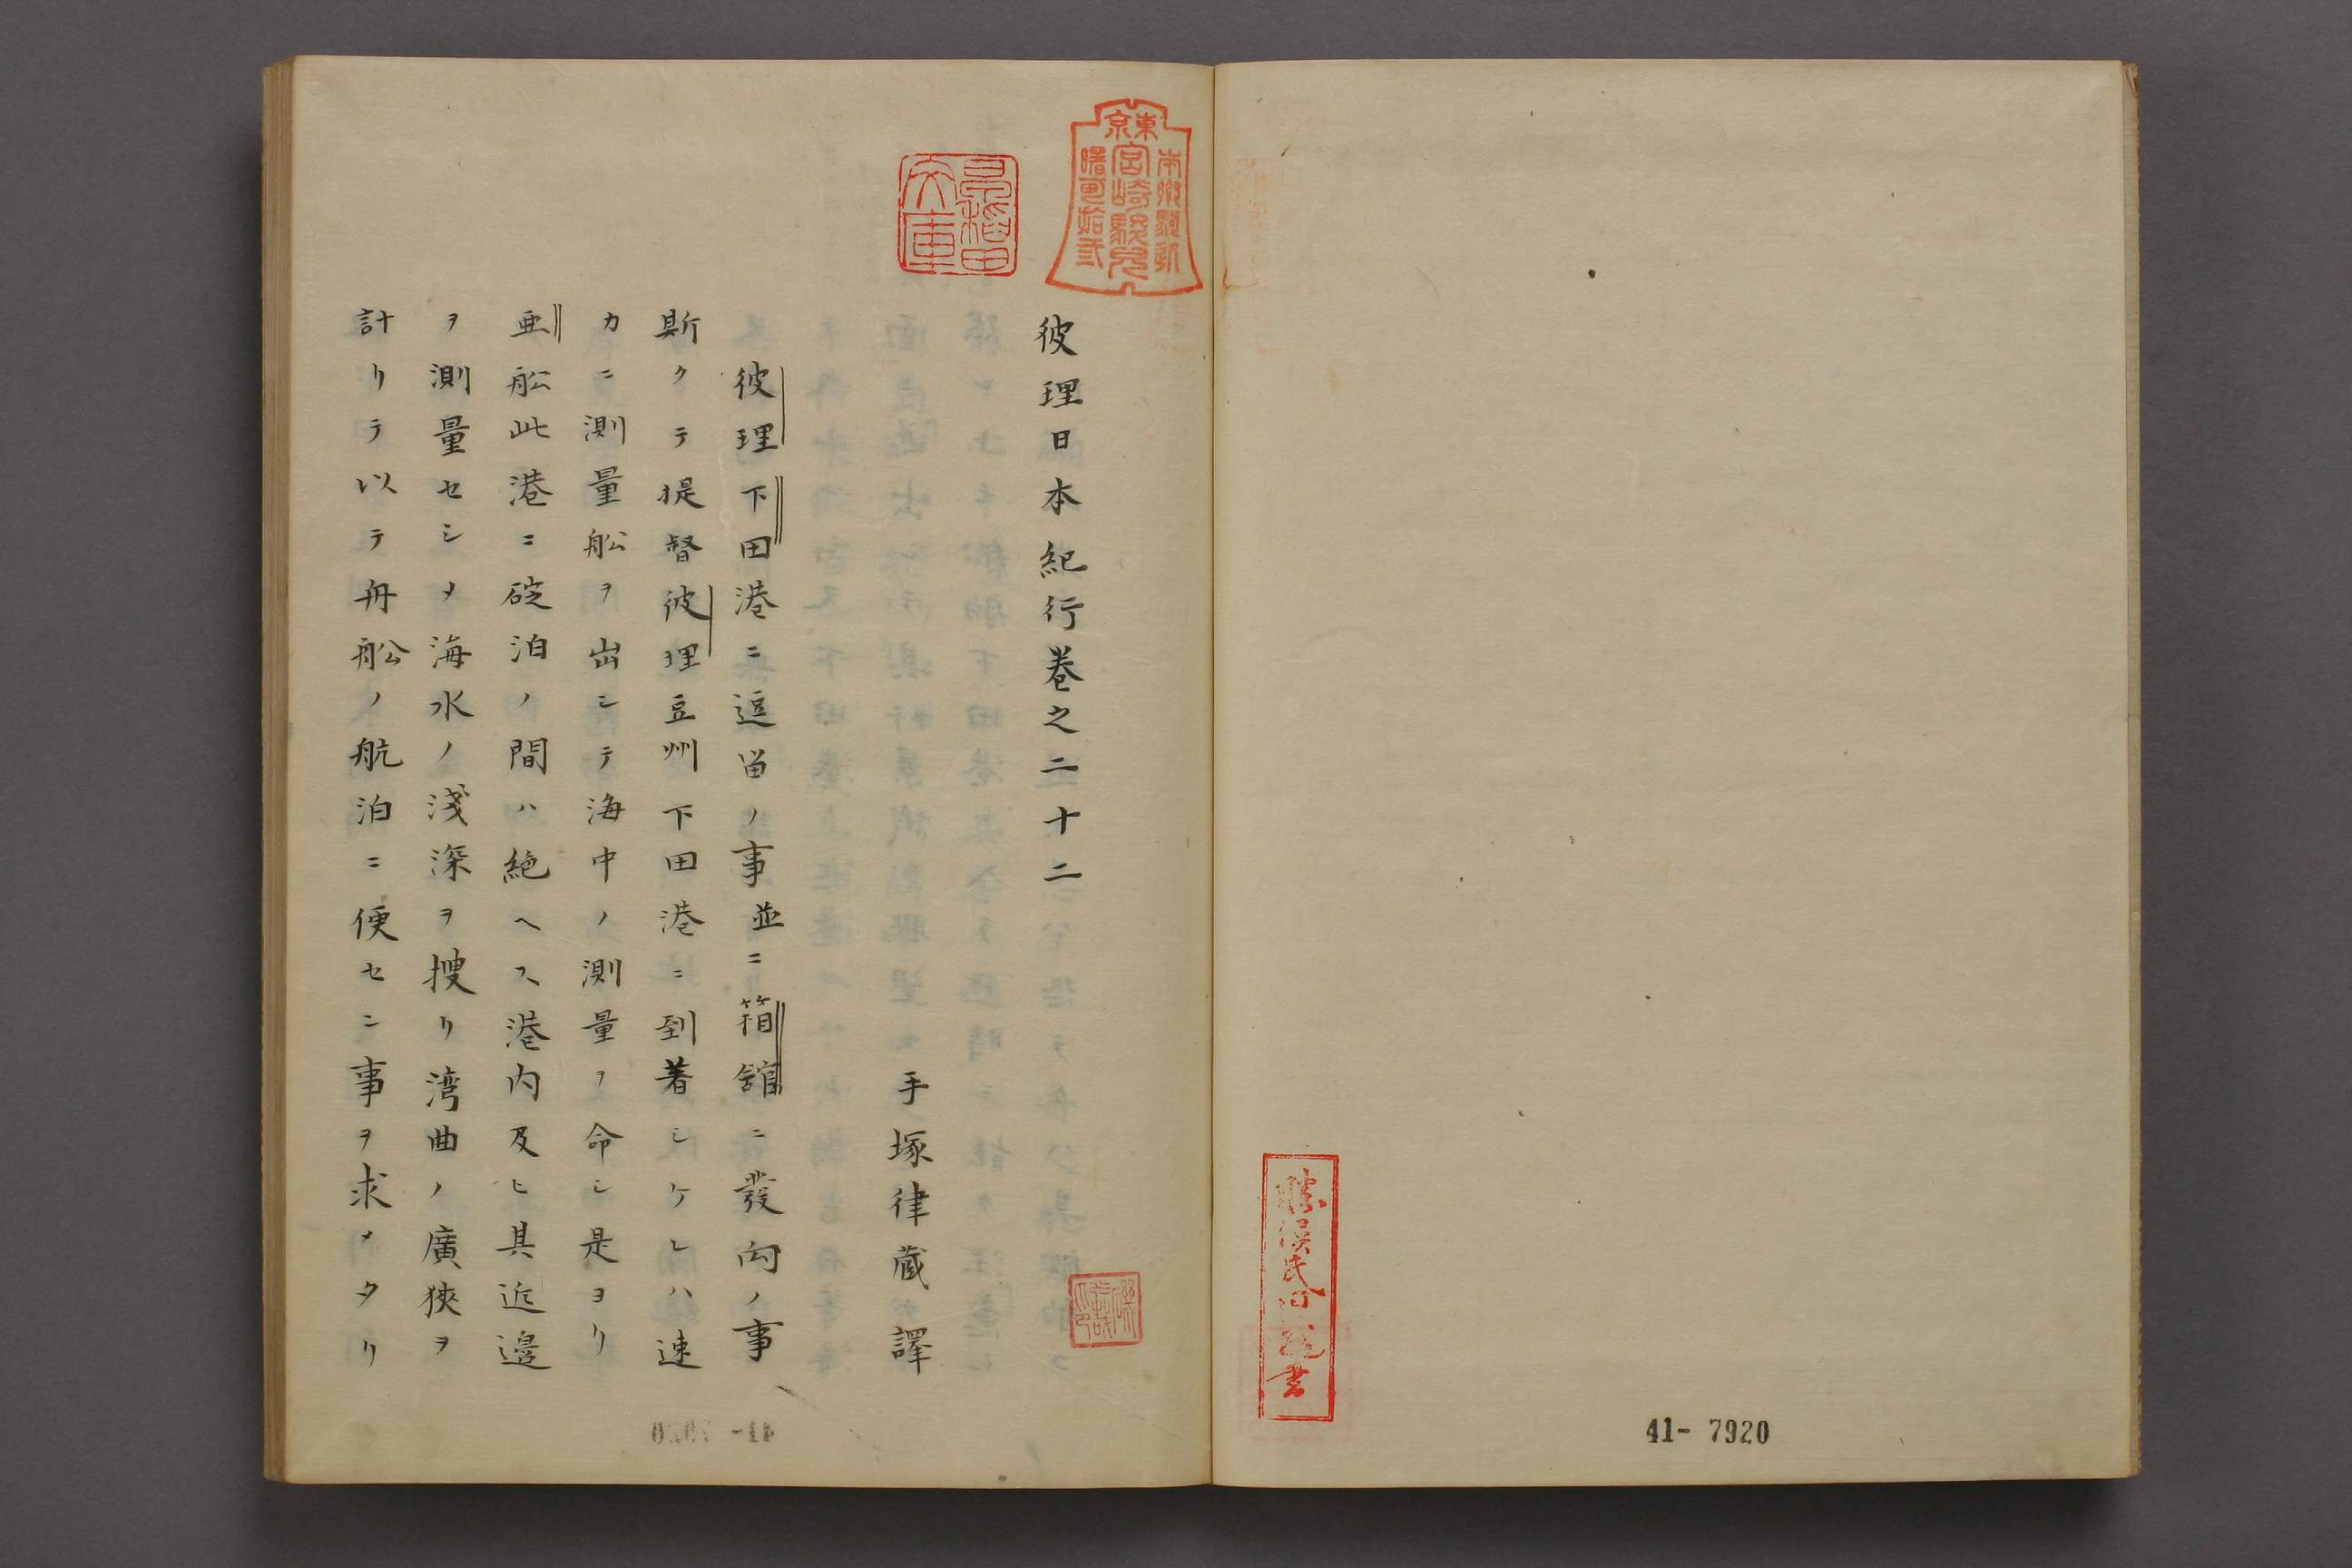 41- 7920
東京
宮崎駿児
彼理日本紀行巻之二十二
手塚律蔵譯
彼理下田港ニ逗留ノ事並ニ箱舘ニ發向ノ事
斯クテ提督彼理豆州下田港ニ到著シケレハ速
カニ測量舩ヲ出シテ海中ノ測量ヲ命シ是ヨリ
亜舩此港ニ碇泊ノ間ハ絶ヘス港内及ヒ其近邉
ヲ測量セシメ海水ノ淺深ヲ捜リ湾曲ノ廣狹ヲ
計リテ以テ舟舩ノ航泊ニ便セン事ヲ求メタリ